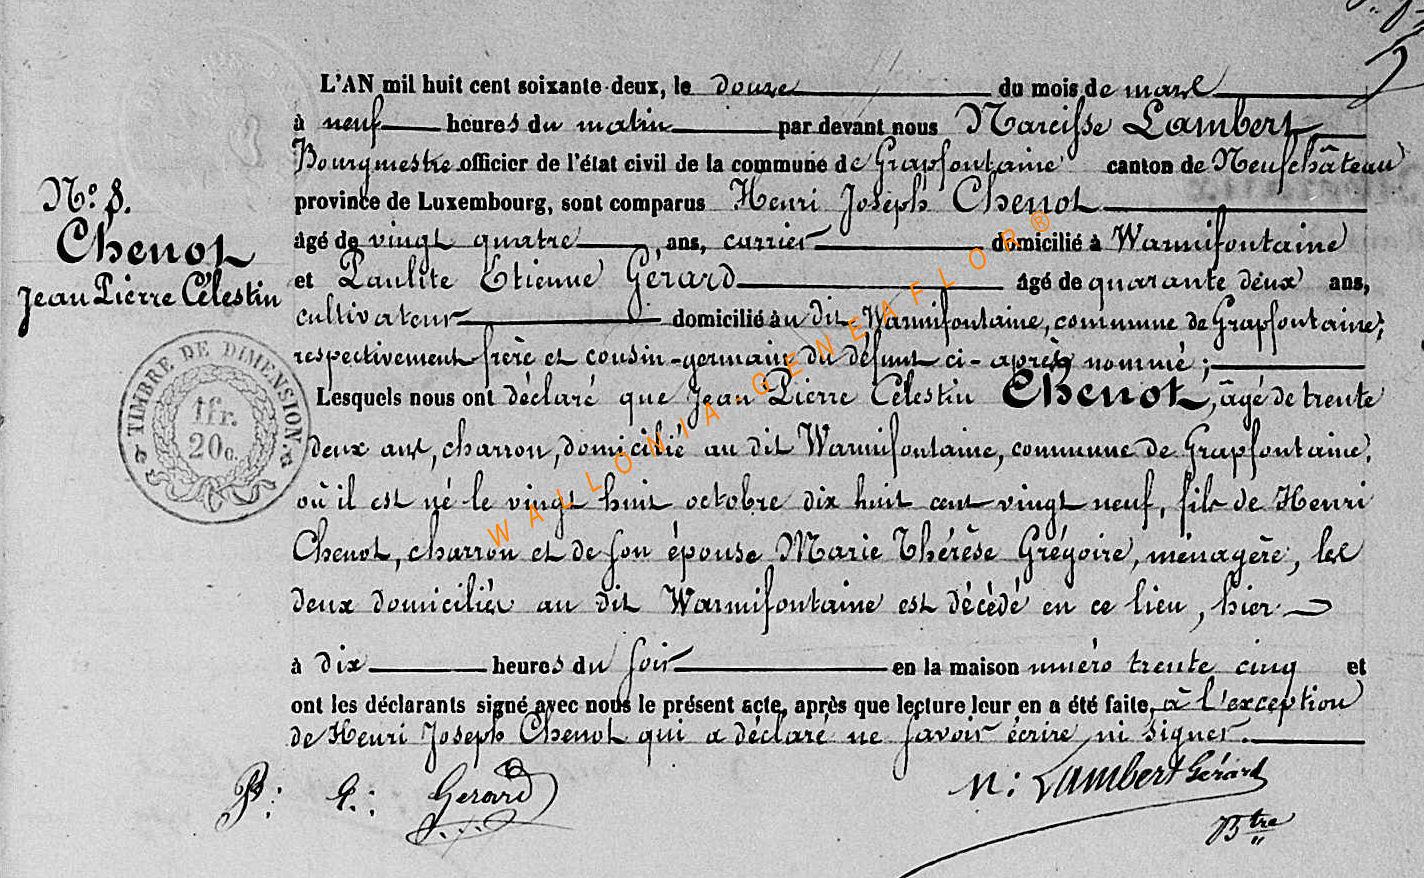 L'AN mil huit cent soixante-deux, le douze du mois de mars
à neuf heures du matin par devant nous Narcisse Lambert
Bourgmestre officier de l'état civil de la commune de Grapfontaine canton de Neufchâteau
province de Luxembourg, sont comparus Henri Joseph Chenot
âgé de vingt quatre ans, carrier domicilié à Warmifontaine
et Paulite Etienne Gérard âgé de quarante deux ans,
cultivateur domicilié à u dit Warmifontaine, commune de Grapfontaine,
respectivement frère et cousin-germain du défunt ci-après nommé ;
Lesquels nous ont déclaré que Jean Pierre Célestin Chenot, âgé de trente
deux ans, charron, domicilié au dit Warmifontaine, commune de Grapfontaine,
où il est né le vingt huit octobre dix huit cent vingt neuf, fils de Henri
Chenot, charron et de son épouse Marie Thérèse Grégoire, ménagère, les
deux domiciliés au dit Warmifontaine est décédé en ce lieu, hier
à dix heures du soir en la maison numéro trente cinq et
ont les déclarants signé avec nous le présent acte, après que lecture leur en a été faite, à l'exception
de Henri Joseph Chenot qui a déclaré ne savoir écrire ni signer.
P: E: Gerard
N: Lambert Gérard
Btre
N.o 8.
Chenot
Jean Pierre Célestin
TIMBRE DE DIMENSION.
1fr.
20c.
WALLONIA-GENEAFLOR®